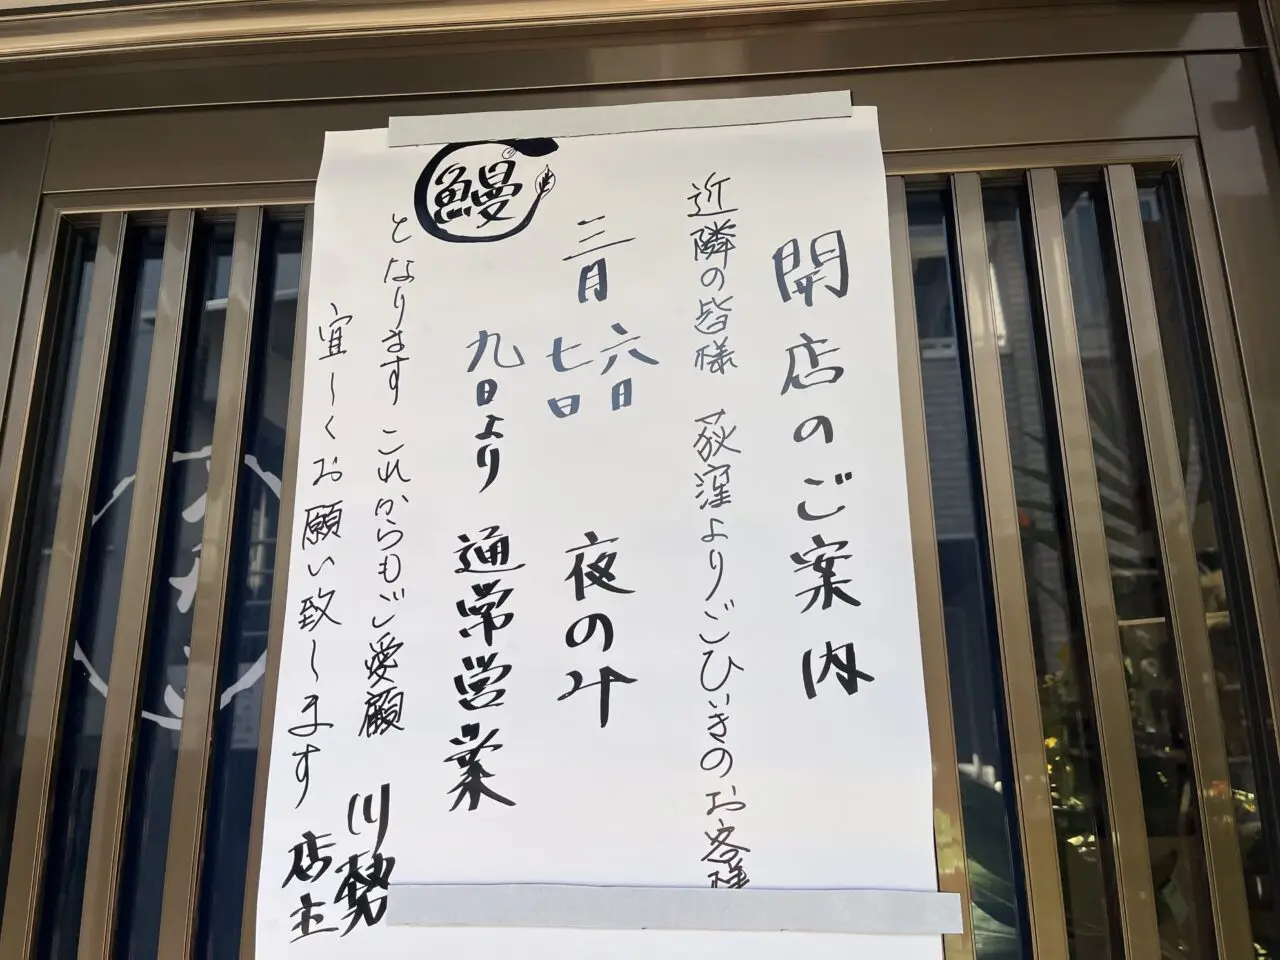 開店のご案内
近隣の皆様 荻窪よりごひいきのお客様
三月 六日 七日 夜のみ
九日より 通常営業
鰻
となります これからもご愛顧
宜しくお願い致します
川勢
店主